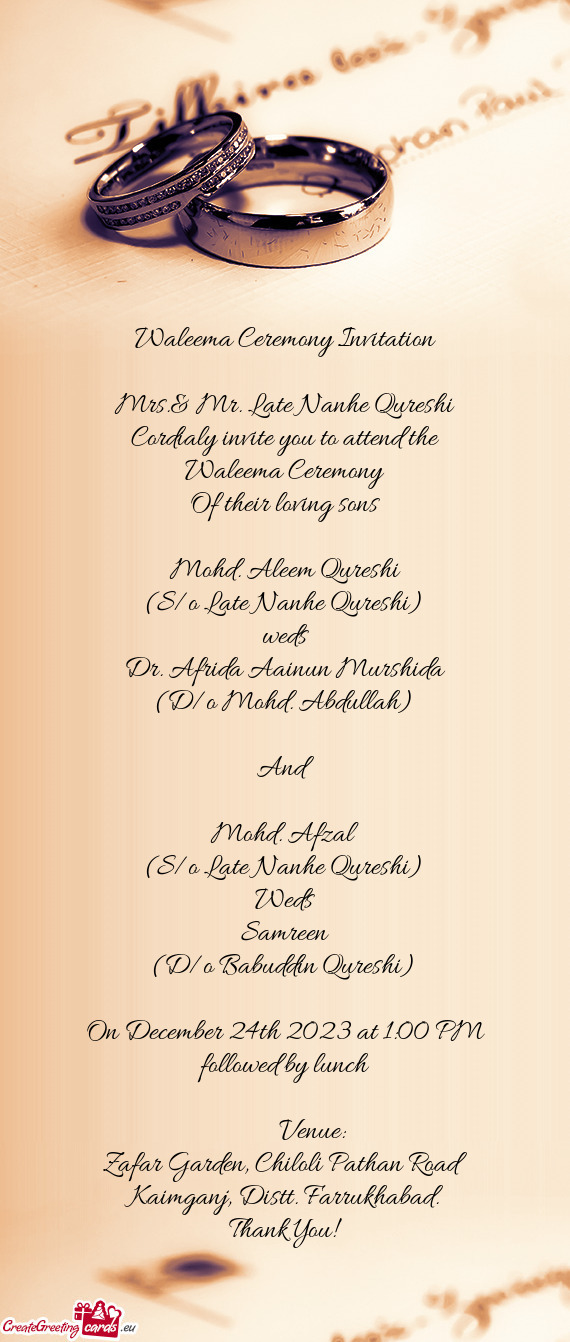 Waleema Ceremony Invitation
Mrs.& Mr. Late Nanhe Qureshi
Cordialy invite you to attend the
Waleema Ceremony
Of their loving sons
Mohd. Aleem Qureshi
(S/o Late Nanhe Qureshi)
weds
Dr. Afrida Aainun Murshida
(D/o Mohd. Abdullah)
And
Mohd. Afzal
(S/o Late Nanhe Qureshi)
Weds
Samreen
(D/o Babuddin Qureshi)
On December 24th 2023 at 1:00 PM
followed by lunch
Venue:
Zafar Garden, Chiloli Pathan Road
Kaimganj, Distt. Farrukhabad.
Thank You!
CreateGreeting cards .eu